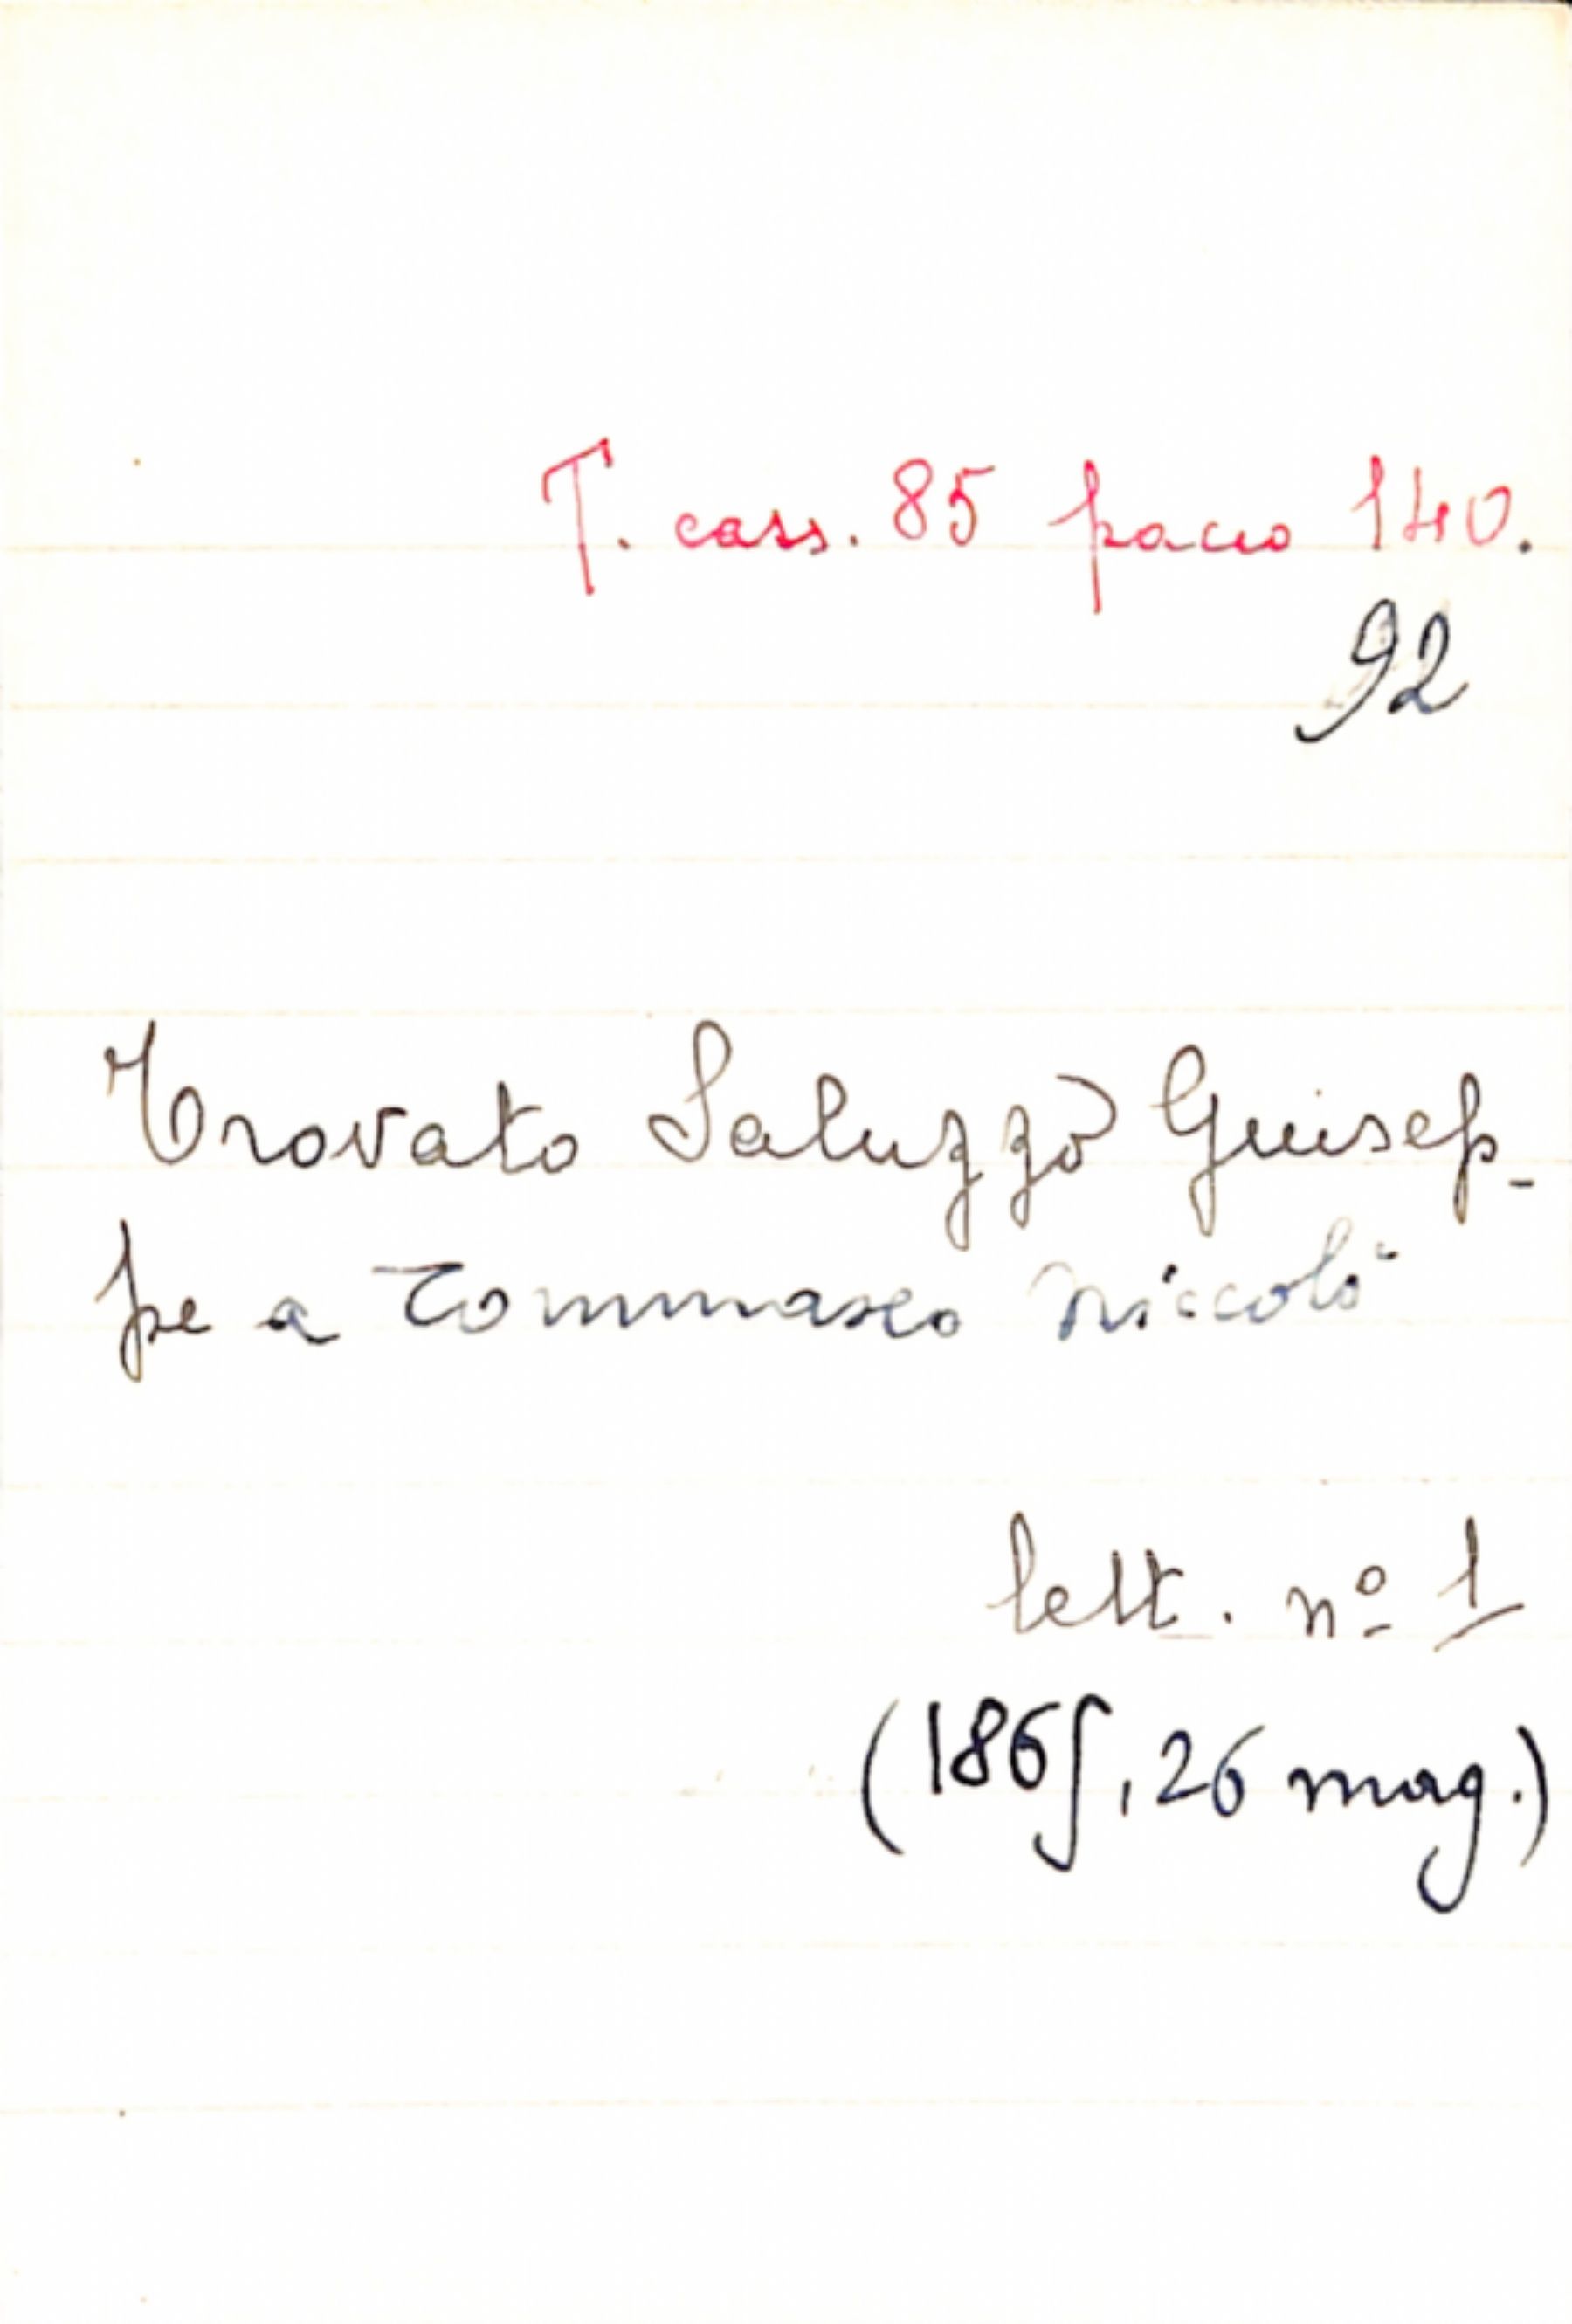 T. cass. 85 pacco 140.
92
Trovato Saluzzò Guisep-
pe a Tommaseo Niccolò
lett. nº 1
(1865, 26 mag.)